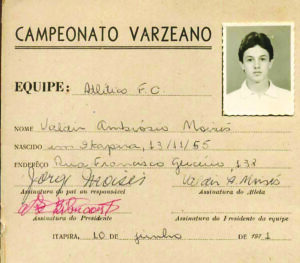 CAMPEONATO VARZEANO
EQUIPE: Atlético F.C.
NOME Valdir Ambrósio Moisés
NASCIDO em Itapira, 13/11/55
ENDERÊÇO Rua Francisco 138
Jorg Moisés Valdir A. Moisés
Assinatura do pai ou responsável Assinatura do Atleta
Assinatura do Presidente Assinatura do Presidente da equipe
ITAPIRA, 10 de junho de 1971